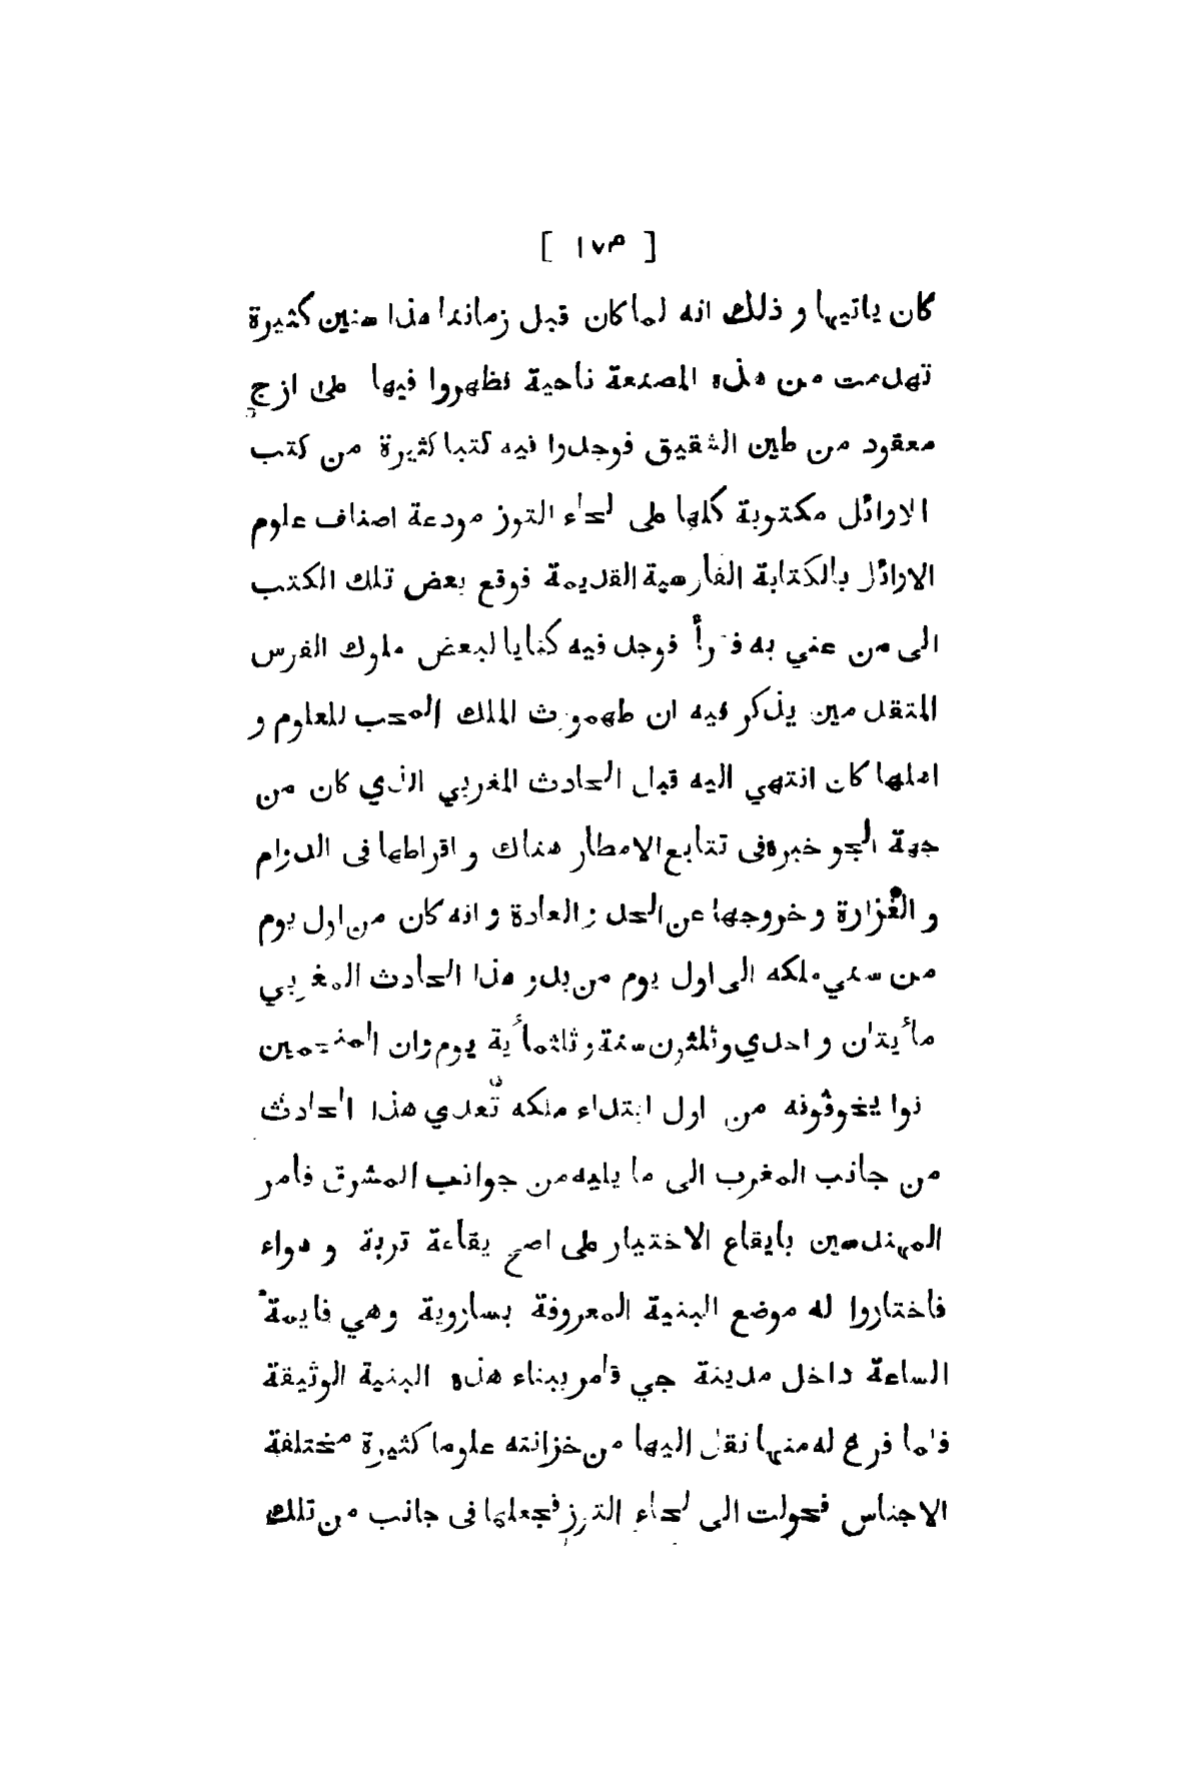 [ ١٧٣ ]
كان ياتيها و ذلك انه لما كان قبل زماننا هذا سنين كثيرة
تهدمت من هذه المصنعة ناحية فظهروا فيها على ازج
معقود من طين الشقيق فوجدوا فيه كتبا كثيرة من كتب
الاوائل مكتوبة كلها على لحاء التوز مودعة اصناف علوم
الاوائل بالكتابة الفارسية القديمة فوقع بعض تلك الكتب
الى من عني به فقرأ فوجد فيه كتابا لبعض ملوك الفرس
المتقدمين يذكر فيه ان طهمورث الملك المحب للعلوم و
اهلها كان انتهي اليه قبل الحادث المغربي الذي كان من
جهة الجو خبره فى تتابع الامطار هناك و افراطها فى الدوام
و الغزارة و خروجها عن الحد و العادة و انه كان من اول يوم
من سني ملكه الى اول يوم من بدو هذا الحادث المغربي
مأيتان و احدي وثلثون سنة و ثلثمأية يوم وان المنجمين
نوا يخوفونه من اول ابتداء ملكه تعدي هذا الحادث
من جانب المغرب الى ما يليه من جوانب المشرق فامر
المهندسين بايقاع الاختيار على اصح بقاعة تربة و هواء
فاختاروا له موضع البنية المعروفة بساروية وهي قايمة
الساعة داخل مدينة جي فامر ببناء هذه البنية الوثيقة
فلما فرغ له منها نقل اليها من خزانته علوما كثيرة مختلفة
الاجناس فحولت الى لحاء التوز فجعلها فى جانب من تلك